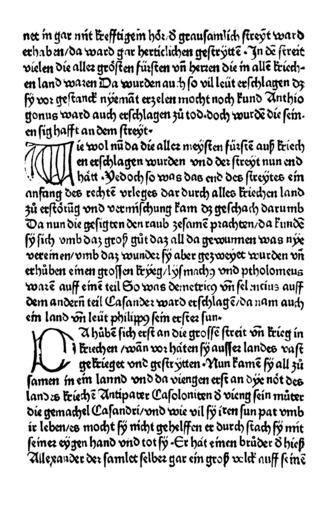 net in gar mit krefftigem hör. d grausamlich streyt ward
erhaben/da ward gar herticlichen gestryttē · In dē streit
vielen die aller grösten fürsten vn̄ herren die in allē kriech-
en land waren Da wurden auch so vil leüt erschlagen dz
sy vor gestanck nyemāt erzelen mocht noch kund Anthio
gonus ward auch erschlagen zů tod · doch wurdē die sein-
en sighafft an dem streyt ·
Wie wol nū da die aller meysten fürstē auß kriech
en erschlagen wurden vnd der streyt nun end
hätt · Yedoch so was das end des streytes ein
anfang des rechtē vrleges dar durch alles kriechen land
zů erstörūg vnd vermischung kam dz geschach darumb
Da nun die gesigten den raub zesamē prachten/da kundē
sy sich vmb daz groß gůt daz all da gewunnen was nye
vereinen/vmb daz wunder sy aber gezweyet wurden vn̄
erhüben einen grossen kryeg/lysmachꝰ vnd ptholomeus
warē auff einē teil So was demetriꝰ vn̄ selencius auff
dem andern̄ teil Casander ward erschlagē/da nam auch
ein land vn̄ leüt philippꝰ sein erster sun ·
DA hübē sich erst an die grossē streit vn̄ krieg in
kriechen/wān vor hätē sy ausser landes vast
gekrieget vnd gestrytten · Nun kamē sy all zů
samen in ein lannd vnd da viengen erst an dye nöt des
landes kriechē Antipater Casoloniten d vieng sein můter
die gemachel Casandri/vnd wie vil sy iren sun pat vmb
ir leben/es mocht sy nicht gehelffen er durch stach sy mit
seiner eygen hand vnd tot sy · Er hät einen brůder d hieß
Allexander der samlet selber gar ein groß volck auff seinē